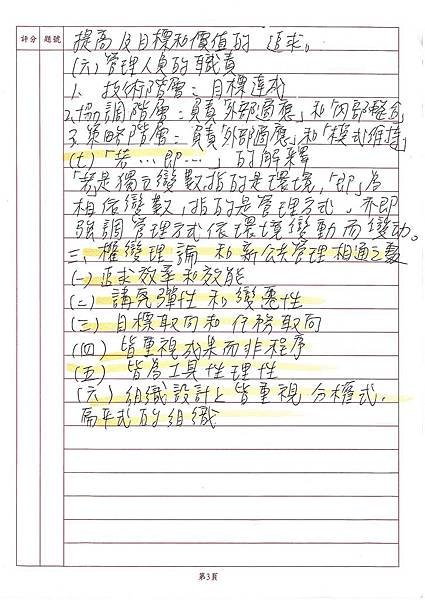 評分 題號
提高及目標和價值的 追求。
(六)管理人員的職責
1、技術階層：目標達成
2.協調階層：負責外部適應」和「內部整合」
3.策略階層：負責「外部適應」和「模式維持」
(七)「若…即…」的解釋
「若是獨立變數指的是環境,「即」為
相依變數,指的是管理方式、亦即
強調管理方式依環境變動而變動。
三、權變理論 和新公共管理相通之處
(一)追求效率和效能
(二)講究彈性和變遷性
(三)目標取向和任務取向
(四)皆重視成果而非程序
(五)皆為工具性理性
(六)組織設計上皆重視分權式.
扁平式的組織
第3頁